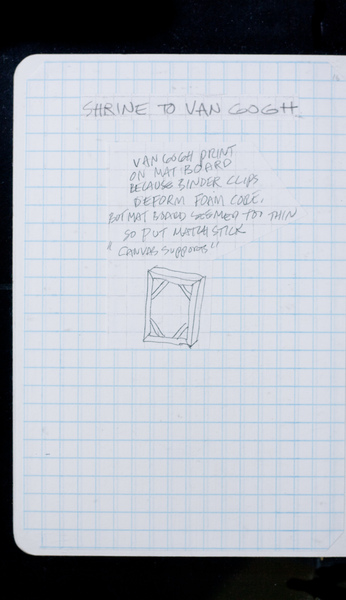 SHRINE TO VAN GOGH
VAN GOGH PRINT
ON MAT BOARD
BECAUSE BINDER CLIPS
DEFORM FOAM CORE.
BUT MAT BOARD SEEMED TOO THIN
SO PUT MATCHSTICK
"CANVAS SUPPORTS"